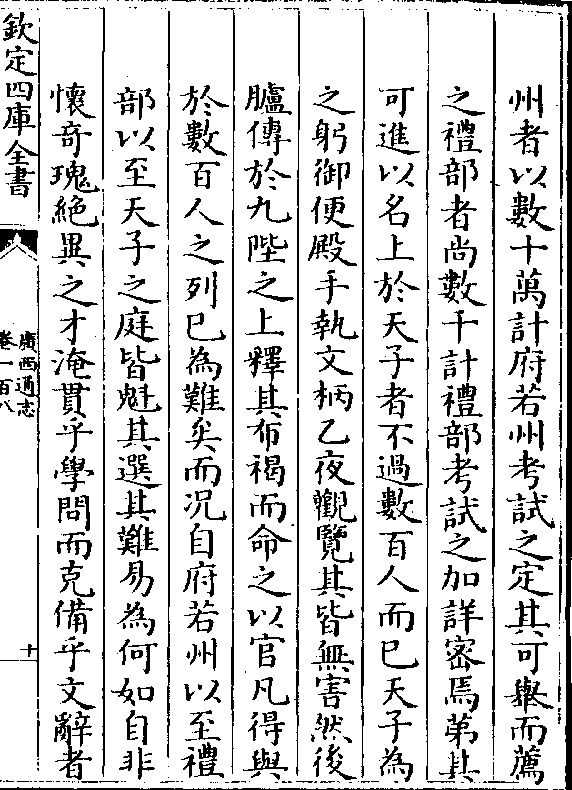 州者以數十萬計府若州考試之定其可舉而薦
之禮部者尚數千計禮部考試之加詳密焉第其
可進以名上於天子者不過數百人而已天子為
之躬御便殿手執文柄乙夜觀覽其皆無害然後
臚傳於九陛之上釋其布褐而命之以官凡得與
於數百人之列已為難矣而况自府若州以至禮
部以至天子之庭皆魁其選其難易為何如自非
懷奇瑰絕異之才淹貫乎學問而克備乎文辭者
欽定四庫全書
廣西通志
卷一百八
十